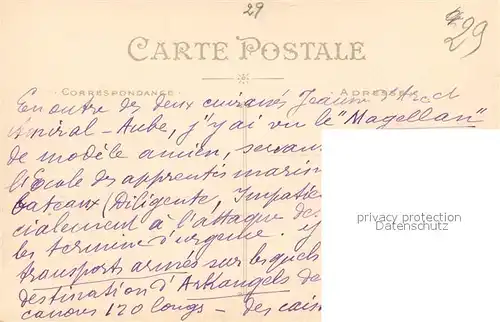 29
29
CARTE POSTALE
CORRESPONDANCE
ADRESSE
En outre des deux cuirassés Jeanne d'Arc et
Amiral-Aube, j'y ai vu le "Magellan"
de modèle ancien, servan
l'École des apprentis marin
bateaux (Diligente, Impatie
cialement à l'attaque de
les termine d'urgence. y
transports armés sur lesquels
destination d'Arkangels de
canons 120 longs - des cais
privacy protection
Datenschutz